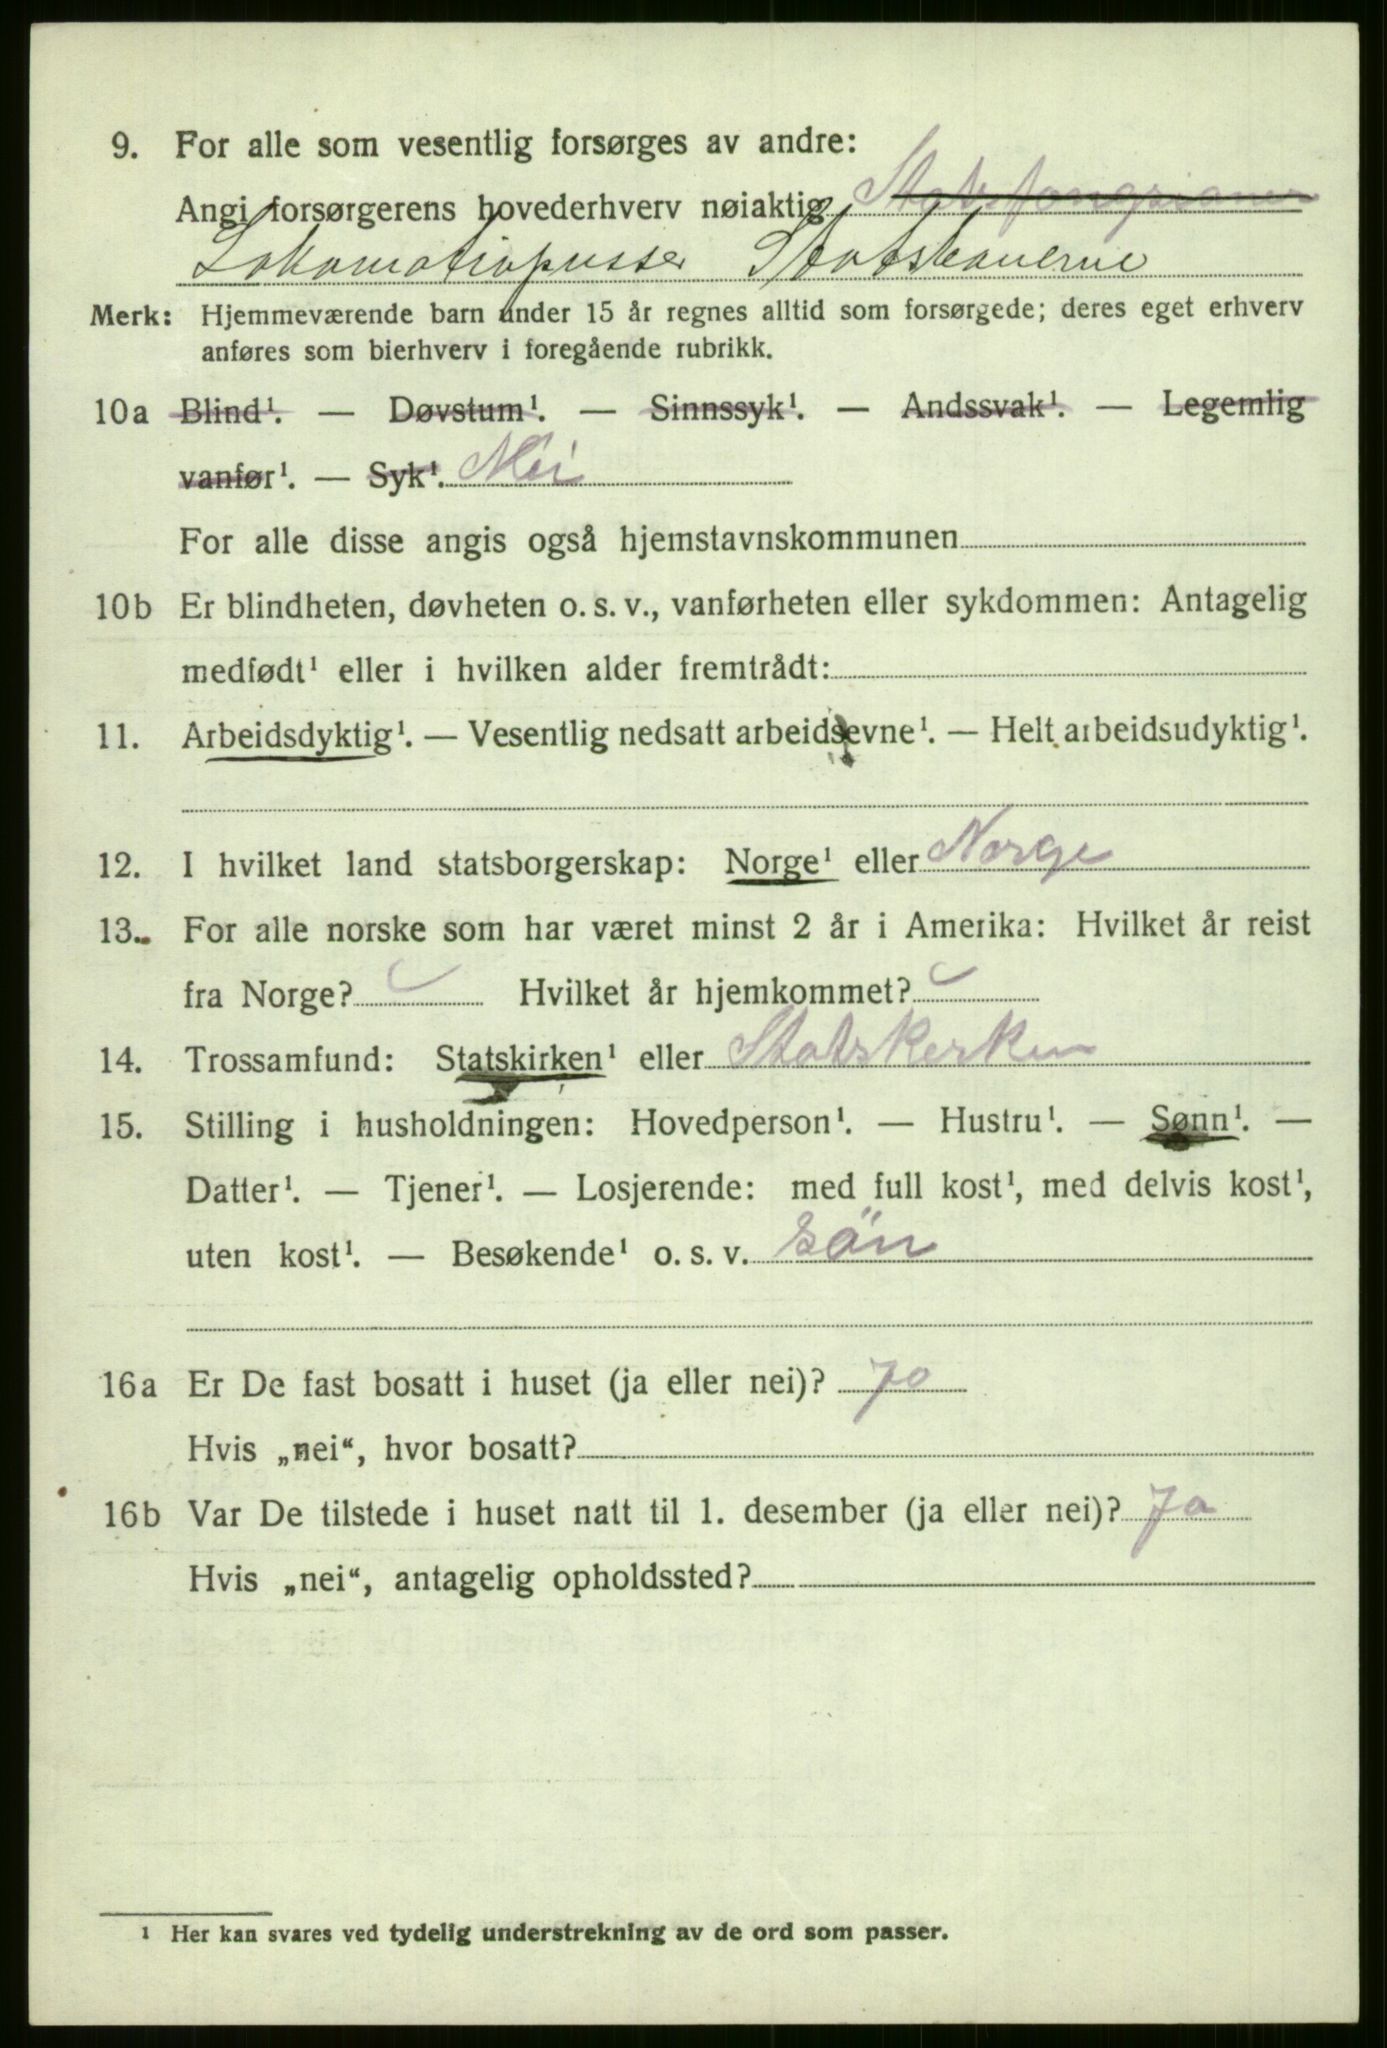 9. For alle som vesentlig forsørges av andre:
Angi forsørgerens hovederhverv nøiaktig
Lokomotivpusser Statsbanerne
Merk: Hjemmeværende barn under 15 år regnes alltid som forsørgede; deres eget erhverv
anføres som bierhverv i foregående rubrikk.
10a Blind¹. — Døvstum¹. — Sinnssyk¹. — Andssvak¹. — Legemlig
vanfør¹. — Syk¹. Nei
For alle disse angis også hjemstavnskommunen
10b Er blindheten, døvheten o. s. v., vanførheten eller sykdommen: Antagelig
medfødt¹ eller i hvilken alder fremtrådt:
11. Arbeidsdyktig¹. — Vesentlig nedsatt arbeidsevne¹. — Helt arbeidsudyktig¹.
12. I hvilket land statsborgerskap: Norge¹ eller Norge
13. For alle norske som har været minst 2 år i Amerika: Hvilket år reist
fra Norge? Hvilket år hjemkommet?
14. Trossamfund: Statskirken¹ eller Statskerken
15. Stilling i husholdningen: Hovedperson¹. — Hustru¹. — Sønn¹. —
Datter¹. — Tjener¹. — Losjerende: med full kost¹, med delvis kost¹,
uten kost¹. — Besøkende¹ o. s. v. sön
16a Er De fast bosatt i huset (ja eller nei)? Ja
Hvis „nei“, hvor bosatt?
16b Var De tilstede i huset natt til 1. desember (ja eller nei)? Ja
Hvis „nei“, antagelig opholdssted?
¹ Her kan svares ved tydelig understrekning av de ord som passer.